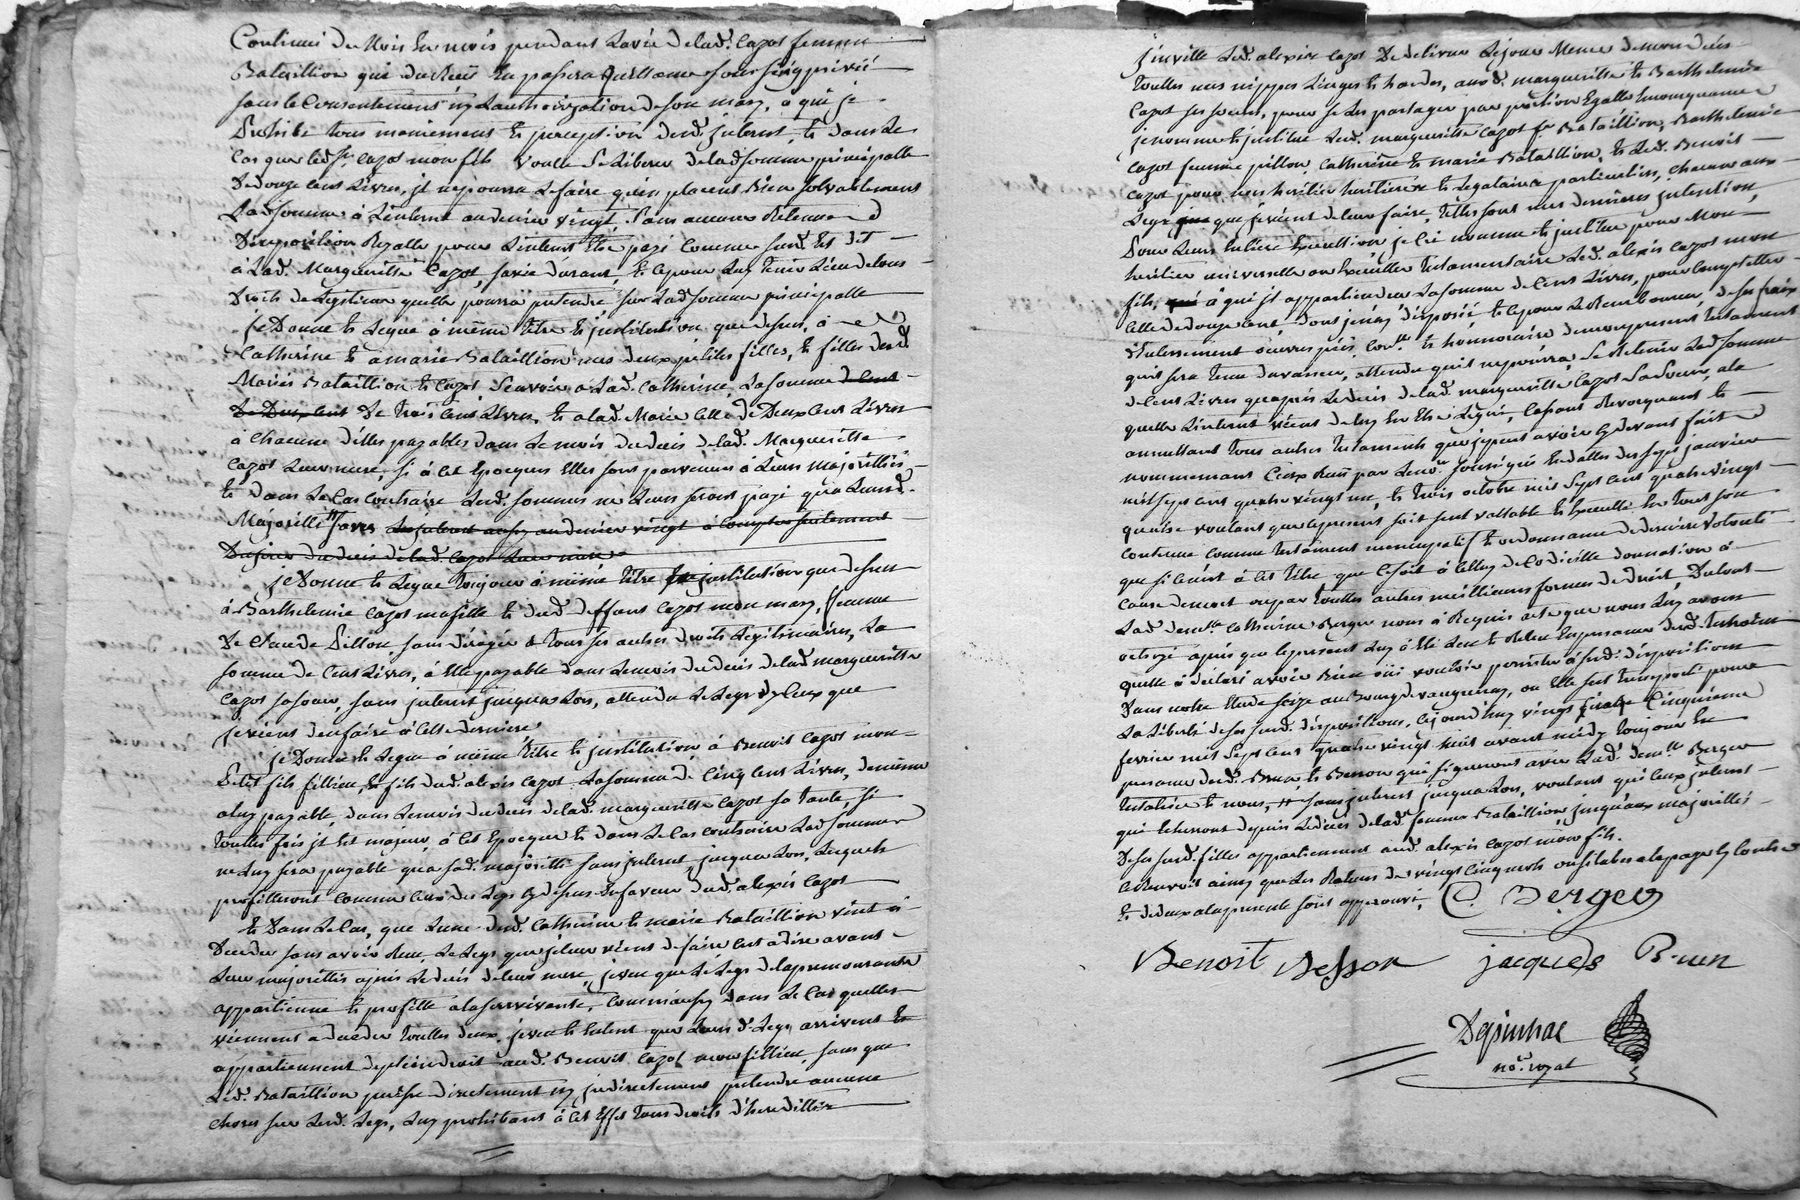 Continué de Mois En mois pendant La vie de lad.e Cazot femme
Bataillion qui du Reçu En passera quittance sous seing privé
sans le Consentement ny L'authorization de son mary, a qui je
Prohibe tous maniement et perception desd. interest, et dans Le
Cas que led. S.r Cazot mon fils voulut Se Liberer de lad. somme principalle
De douze Cent Livres, il ne pourra Le faire qu'en placant Bien solvablement
Lad. somme à L'interest au denier vingt, Sans aucune
Disposition Regalle pour L'interest Etre payé Comme susd. Est dit
à Lad. Margueritte Cazot, sa vie durant, et Ce pour Luy tenir Lieu de tous
Droits de Legitime quelle pourra pretendre sur Lad. somme principalle
je Donne et Legue à même titre et institution que dessus, à
Catherine et a marie Bataillion mes deux petites filles, et filles desd.
Mariés Bataillion et Cazot, Sçavoir à Lad. Catherine La somme de Cent
De Deux Cent De trois Cent Livres, et a lad. Marie Celle de Deux Cent Livres
à Chacune d'elles payables dans Le mois du deces de lad. Margueritte
Cazot Leur mere, si à Cet Epocque Elles sont parvenues à Leurs Majorittés
et dans Le Cas Contraire Lesd. sommes ne Leurs seront payé qu'a Leursd.
Majorittés avec interest au denier vingt à Compter seulement
Du jour du deces de lad. Cazot Leur mere
je Donne et Legue toujour à même titre et institution que dessus
à Barthelemie Cazot ma fille et dud. deffunt Cazot mon mary, femme
De Claude Pillon, sans déroger à tous ses autres droits Legitimaires, La
somme de Cent Livres, à Elle payable dans Le mois du deces de lad. margueritte
Cazot sa soeur, sans interest jusqua Lors, attendu Le Legs Ceux que
je viens de faire à Cette derniere
je Donne et Legue à même titre et institution, à Benoit Cazot mon
Petit fils fillieu, et fils dud. alexis Cazot La somme de Cinq Cent Livres, de même
a luy payable, dans Le mois du deces de lad. margueritte Cazot sa tante, si
toutte fois il Est majeur, à Cet Epocque et dans Le Cas Contraire Lad. somme
ne Luy sera payable qu'a sad. majoritté sans interest jusqua Lors, Lesquels
profitteront Comme Ceux des Legs Cy dessus En faveur dud. alexis Cazot
Et Dans Le Cas, que L'une desd. Catherine et marie Bataillion vint à
Deceder sans avoir Reçu Le Legs que je leur vient de faire Cest a dire avant
Leur majorittés après Le deces de leur mere, je veu que Le Legs de la premourante
appartienne et profitte a la survivante, Comme aussy dans Le Cas quelles
viennent a deceder touttes deux, je veu et Entent que Leurs d. Legs arrivent Et
appartiennent de plein droit aud. Benoit Cazot mon fillieu, sans que
Led. Bataillion puisse directement ny indirectement pretendre aucune
Choses sur Lesd. Legs, Luy prohibant à Cet Effet tous droits d'heredittés
led. alexis Cazot De delivrer Le jour Meme de mon deces
touttes mes nippes Linges et hardes, auxd. margueritte et Barthelemie
Cazot ses soeurs, pour se Les partager par portion Egalle
je nomme et institue Lesd. margueritte Cazot f.e Bataillion, Barthelemie
Cazot femme pillon, Catherine et marie Bataillion, et Led. Benoit
Cazot pour mes heritiers heritieres et Legataires particuliers, Chacun aux
Legs que je vient de leur faire, telles sont mes dernieres intention,
Pour Leurs Entiere Execution je lui nomme et institue pour Mon
heritier universelle Led. alexis Cazot mon
fils, à qui il appartiendra La somme de Cent Livres, pour Completter
Celle de douze Cent, dont j'en ay disposé, et Ce pour Le Rembourcer, des frais
d'Enterrement et honnoraire du present testament
qu'il sera tenu d'avancer, attendu qu'il ne pourra Se Retenir Lad. somme
de Cent Livres qu'après Le deces de lad. margueritte Cazot Sa soeur, a la
quelle L'interest vient de luy En Etre Legué, Cassant Revocquant et
annullant tous autres testaments que je peut avoir Cy devant fait
nommement Ceux Reçu par Le no.re soussigné En dattes des sept janvier
mil sept cent quatre vingt un, et trois octobre mil sept cent quatre vingt
quatre voulant que Ce present soit seul vallable et Execuité En tout son
Contenu Comme testament noncupatif et ordonnance de derniere volonté
que si Ce n'est à Cet titre que Ce soit à Celluy de Codicille donnation à
Cause de mort ou par touttes autres meillieures formes de droit, Dudont
Lad. dem.lle Catherine Berger nous à Requis acte que nous Luy avons
octroyé après que Le present Luy à Eté Leu et Releu En presence desd. temoins
quelle à declaré avoir Bien oüi vouloir persister à sesd. dispositions
Dans notre Etude size au Bourg de vaugneray, ou Elle s'est transporté pour
La Liberté de ses susd. dispositions, Cejourd'huy vingt Cinquieme
fevrier mil sept cent quatre vingt huit avant midy toujour En
presence desd. Brun et Besson qui signeront avec Lad. dem.lle Berger
testatrice et nous, sans interest jusqua Lors, voulant que Ceux interest
qui Echeront depuis Le deces de lad. femme Bataillion jusqu'aux majorittés
De ses susd. filles appartiennent aud. alexis Cazot mon fils.
Le Renvoit ainsy que Les Ratures de vingt Cinq mots
et de deux a la presente sont approuvé, C. Berger
Benoit Besson jacques Brun
Depinhac
no.re royal